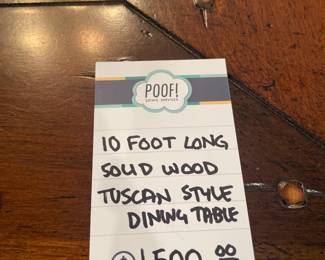 POOF!
ESTATE SERVICES
10 FOOT LONG
SOLID WOOD
TUSCAN STYLE
DINING TABLE
1,500.00